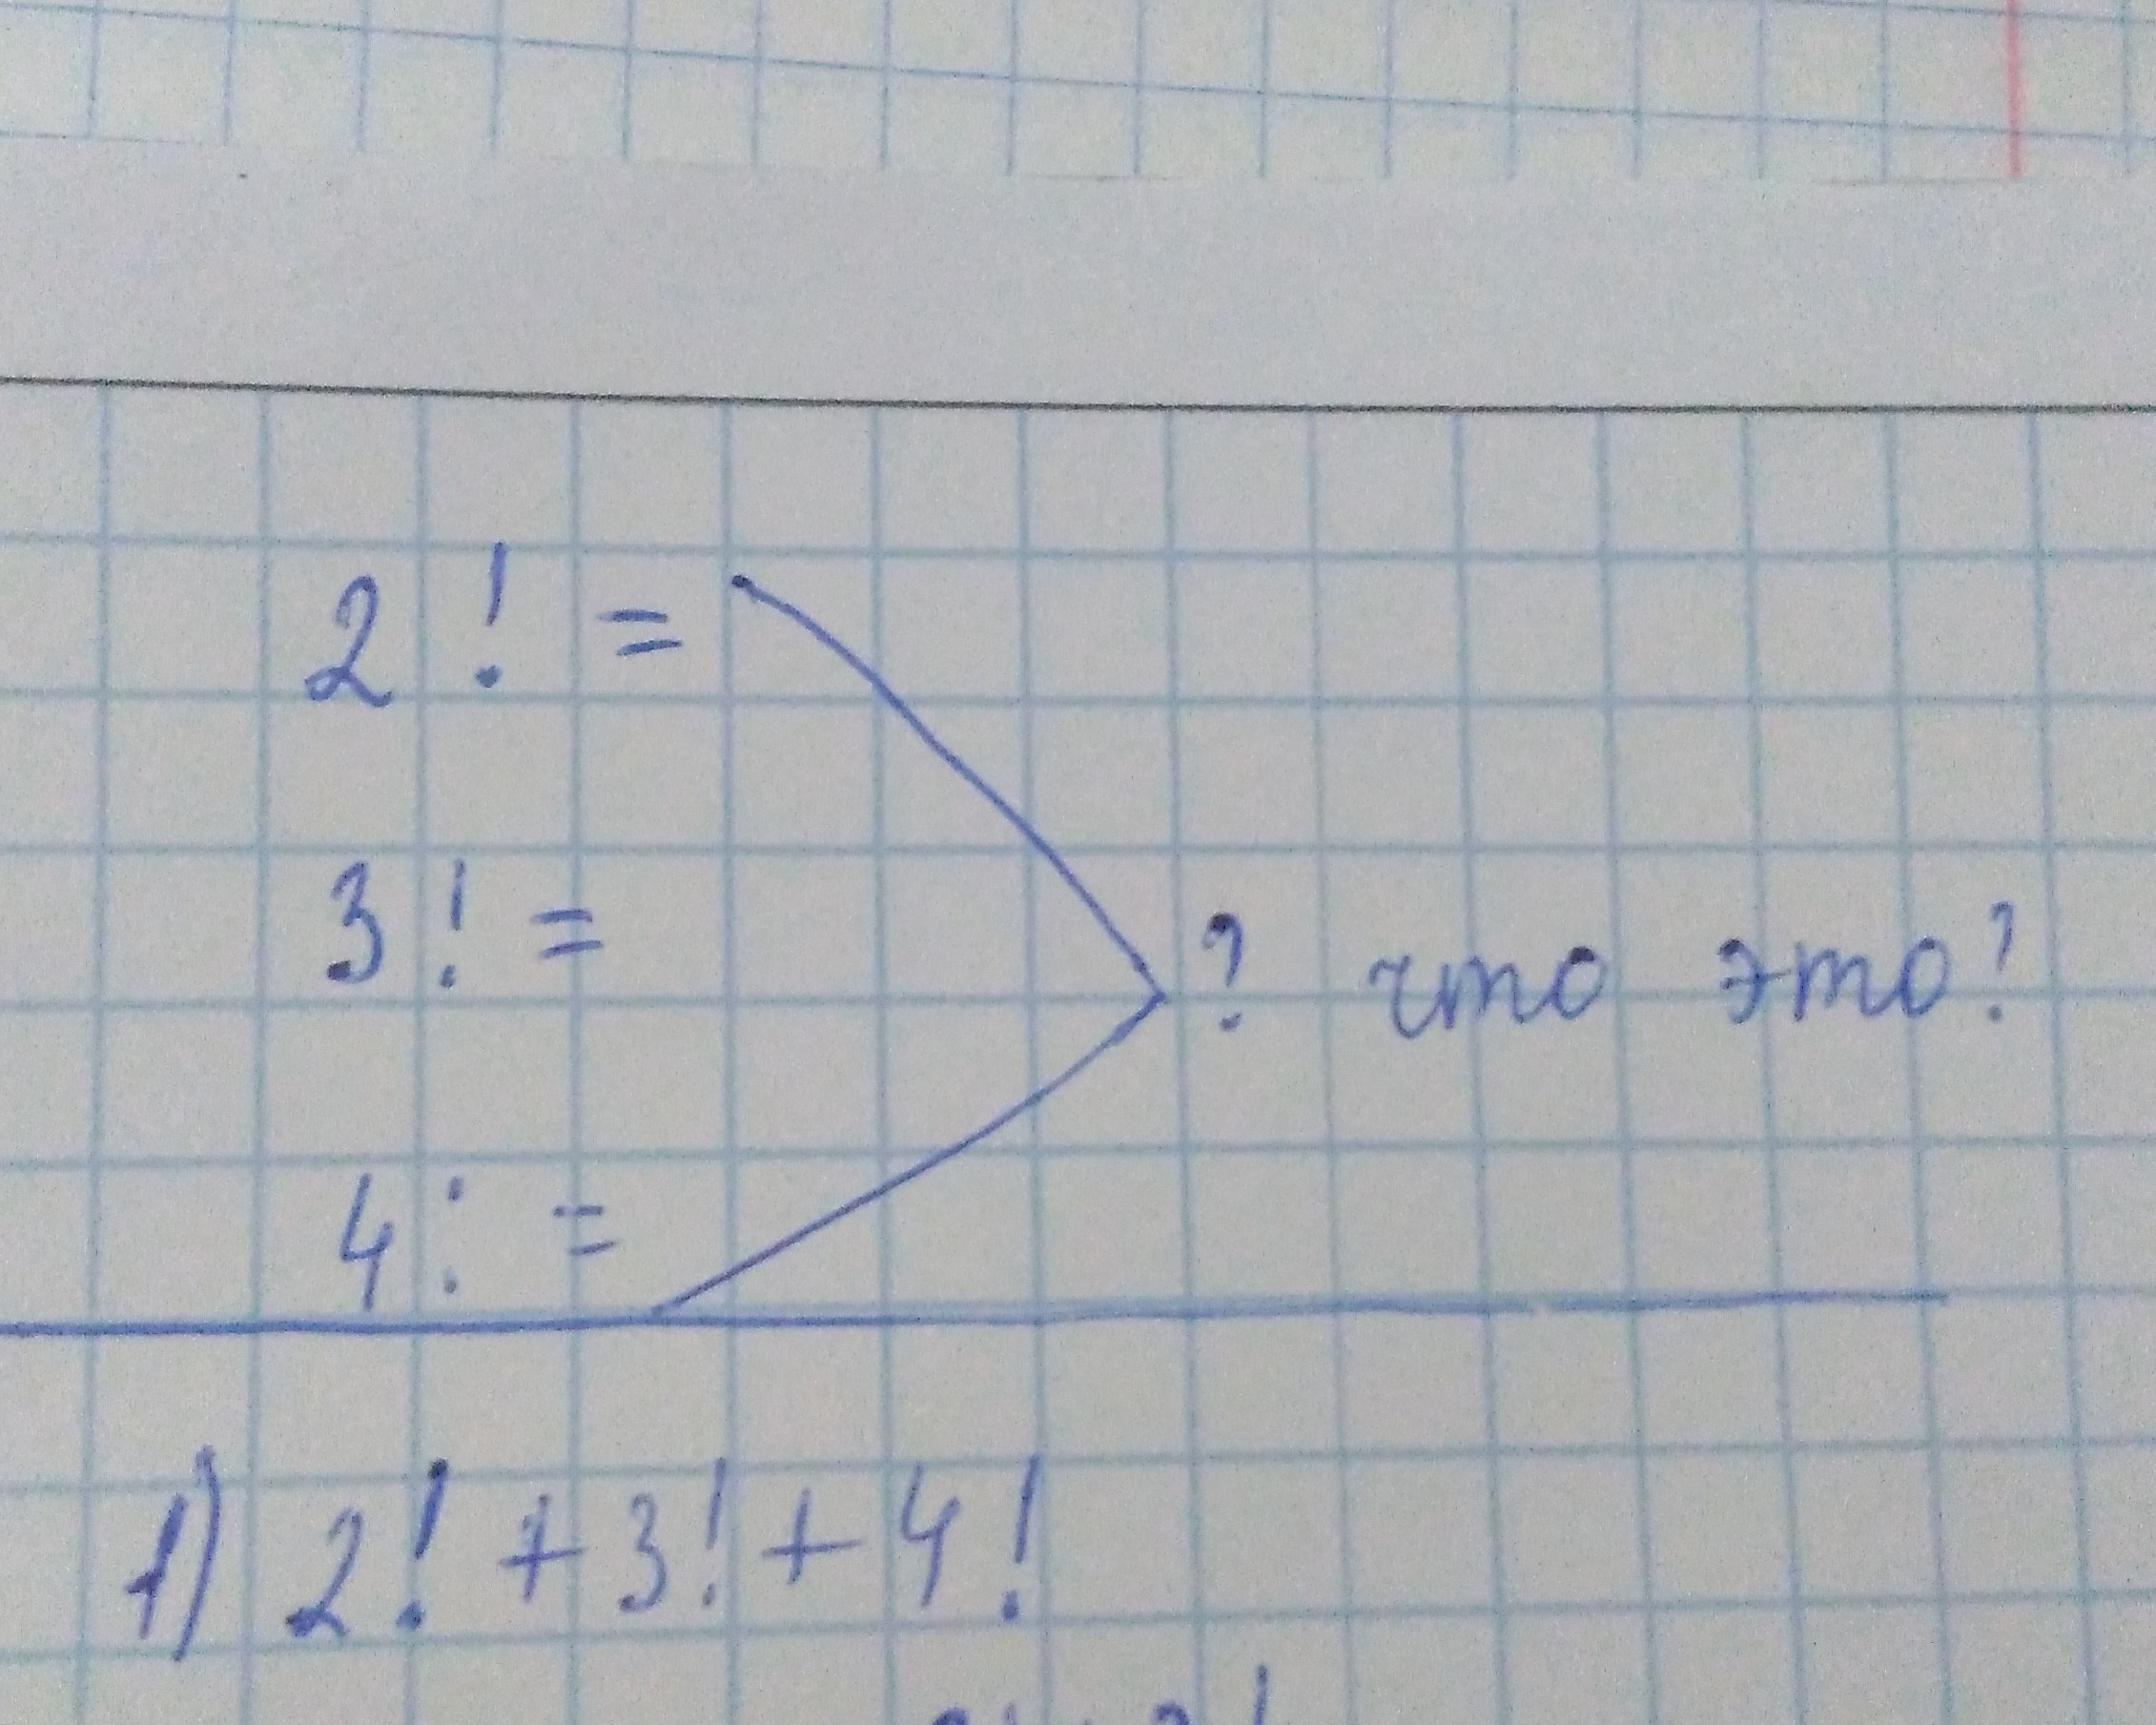 2! =
3! =
? что это?
4! =
1) 2! + 3! + 4!